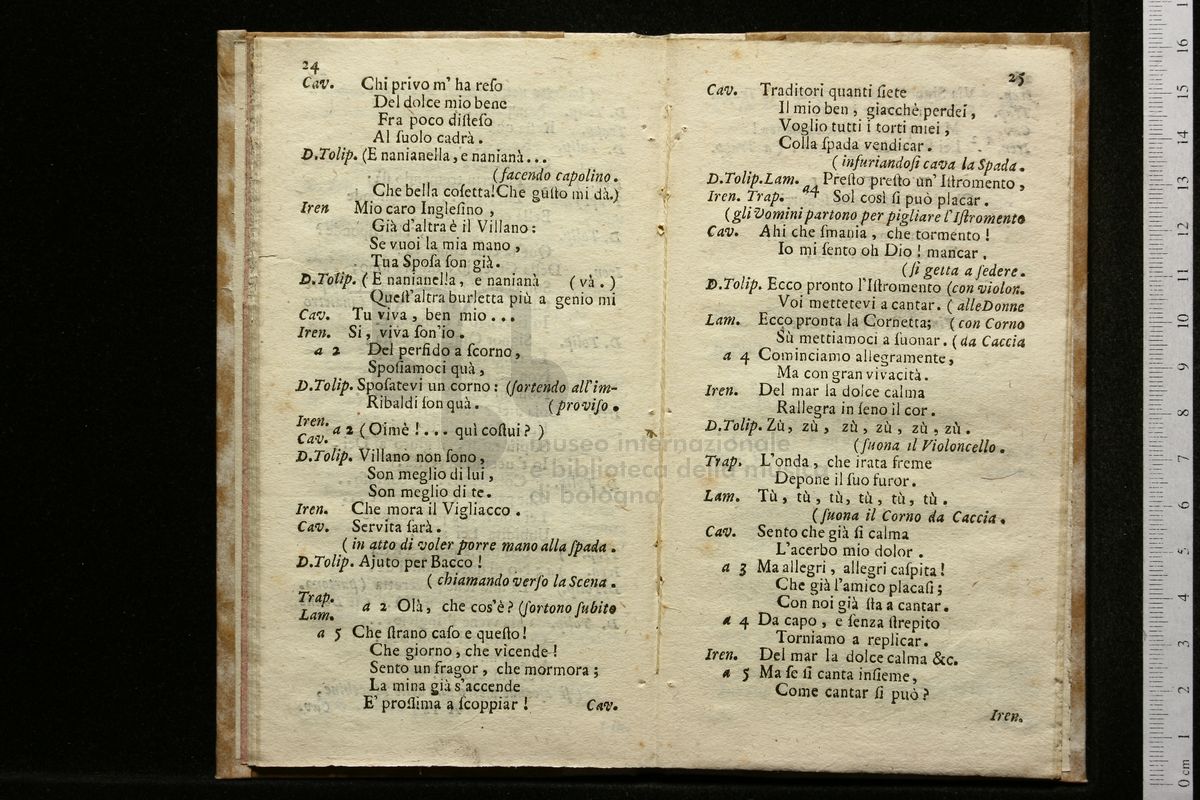 24
Cav. Chi privo m' ha reſo
Del dolce mio bene
Fra poco diſteſo
Al ſuolo cadrà.
D.Tolip. (E nanianella, e nanianà...
(facendo capolino.
Che bella coſetta! Che guſto mi dà.)
Iren Mio caro Ingleſino,
Già d'altra è il Villano:
Se vuoi la mia mano,
Tua Spoſa ſon già.
D.Tolip. (E nanianella, e nanianà (và.)
Queſt'altra burletta più a genio mi
Cav. Tu viva, ben mio...
Iren. Si, viva ſon'io.
a 2 Del perfido a ſcorno,
Spoſiamoci quà,
D.Tolip. Spoſatevi un corno: (ſortendo all'im-
Ribaldi ſon quà. (proviſo.
Iren.
Cav. a 2 (Oimè!... quì coſtui?)
D.Tolip. Villano non ſono,
Son meglio di lui,
Son meglio di te.
Iren. Che mora il Vigliacco.
Cav. Servita ſarà.
(in atto di voler porre mano alla ſpada.
D.Tolip. Ajuto per Bacco!
(chiamando verſo la Scena.
Trap.
Lam. a 2 Olà, che cos'è? (ſortono ſubito
a 5 Che ſtrano caſo e queſto!
Che giorno, che vicende!
Sento un fragor, che mormora;
La mina già s'accende
E' proſſima a ſcoppiar! Cav.
25
Cav. Traditori quanti ſiete
Il mio ben, giacchè perdei,
Voglio tutti i torti miei,
Colla ſpada vendicar.
(infuriandoſi cava la Spada.
D.Tolip.Lam. a4 Preſto preſto un' Iſtromento,
Iren. Trap. Sol così ſi può placar.
(gli Uomini partono per pigliare l'Iſtromento
Cav. Ahi che ſmania, che tormento!
Io mi ſento oh Dio! mancar.
(ſi getta a ſedere.
D.Tolip. Ecco pronto l'Iſtromento (con violon.
Voi mettetevi a cantar. (alle Donne
Lam. Ecco pronta la Cornetta; (con Corno
Sù mettiamoci a ſuonar. (da Caccia
a 4 Cominciamo allegramente,
Ma con gran vivacità.
Iren. Del mar la dolce calma
Rallegra in ſeno il cor.
D.Tolip. Zù, zù, zù, zù, zù, zù.
(ſuona il Violoncello.
Trap. L'onda, che irata freme
Depone il ſuo furor.
Lam. Tù, tù, tù, tù, tù, tù.
(ſuona il Corno da Caccia.
Cav. Sento che già ſi calma
L'acerbo mio dolor.
a 3 Ma allegri, allegri caſpita!
Che già l'amico placaſi;
Con noi già ſta a cantar.
a 4 Da capo, e ſenza ſtrepito
Torniamo a replicar.
Iren. Del mar la dolce calma &c.
a 5 Ma ſe ſi canta inſieme,
Come cantar ſi può?
Iren.
museo internazionale
e biblioteca della musica
di bologna
0 cm 1 2 3 4 5 6 7 8 9 10 11 12 13 14 15 16 1